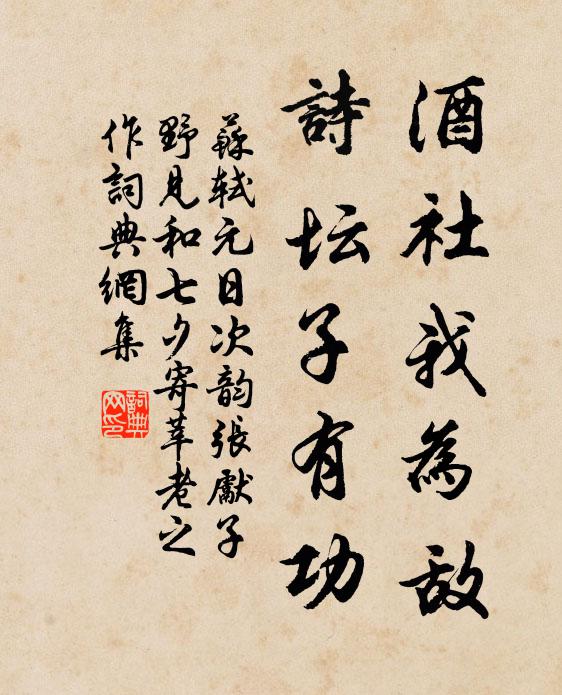 酒社我為敌
詩坛子有功
蘇軾元日次韵張獻子
野見和七夕寄莘老之
作詞典網集
詞典网印